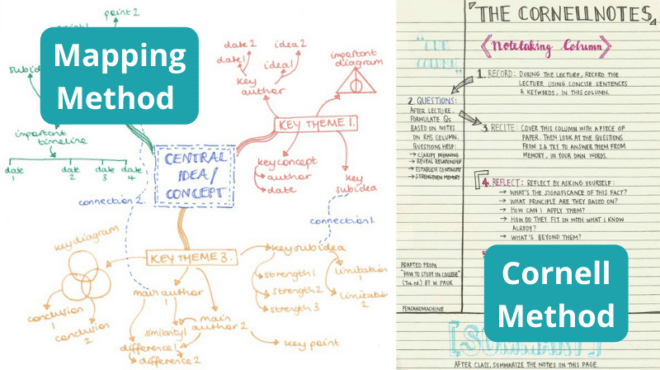 point2
Mapping
Method
subid
important
timeline
date
1
date
2
date
3
date
4
date2
date1
idea2
idea1
key
author
important
diagram
KEY THEME 1.
CENTRAL
IDEA/
CONCEPT
key concept
author
date
key
subidea
connection2
connection1
key diagram
KEY THEME 3.
key subidea
strength1
strength2
strength3
limitation
1
limitation
2
main author
1
main
author 2
similarity1
difference1
difference2
conclusion
1
conclusion
2
key point
THE CORNELL NOTES
CUE
COLUMN
Notetaking Column
1. RECORD: DURING THE LECTURE, RECORD THE
LECTURE USING CONCISE SENTENCES
& KEYWORDS, IN THIS COLUMN.
2. QUESTIONS:
AFTER LECTURE,
FORMULATE QS
BASED ON NOTES
ON RHS COLUMN.
QUESTIONS HELP:
→ CLARIFY MEANING
→ REVEAL RELATIONSHIP
→ ESTABLISH CONTINUITY
→ STRENGTHEN MEMORY
3. RECITE: COVER THIS COLUMN WITH A PIECE OF
PAPER. THEN LOOK AT THE QUESTIONS
FROM 2 & TRY TO ANSWER THEM FROM
MEMORY, IN YOUR OWN WORDS.
4. REFLECT: REFLECT BY ASKING YOURSELF:
→ WHAT'S THE SIGNIFICANCE OF THIS FACT?
→ WHAT PRINCIPLE ARE THEY BASED ON?
→ HOW CAN I APPLY THEM?
→ HOW DO THEY FIT IN WITH WHAT I KNOW
ALREADY?
→ WHAT'S BEYOND THEM?
ADAPTED FROM
"HOW TO STUDY IN COLLEGE"
BY W. PAUK
PENSANDMACHINE
Cornell
Method
[SUMMARY]
AFTER CLASS, SUMMARIZE THE NOTES ON THIS PAGE.